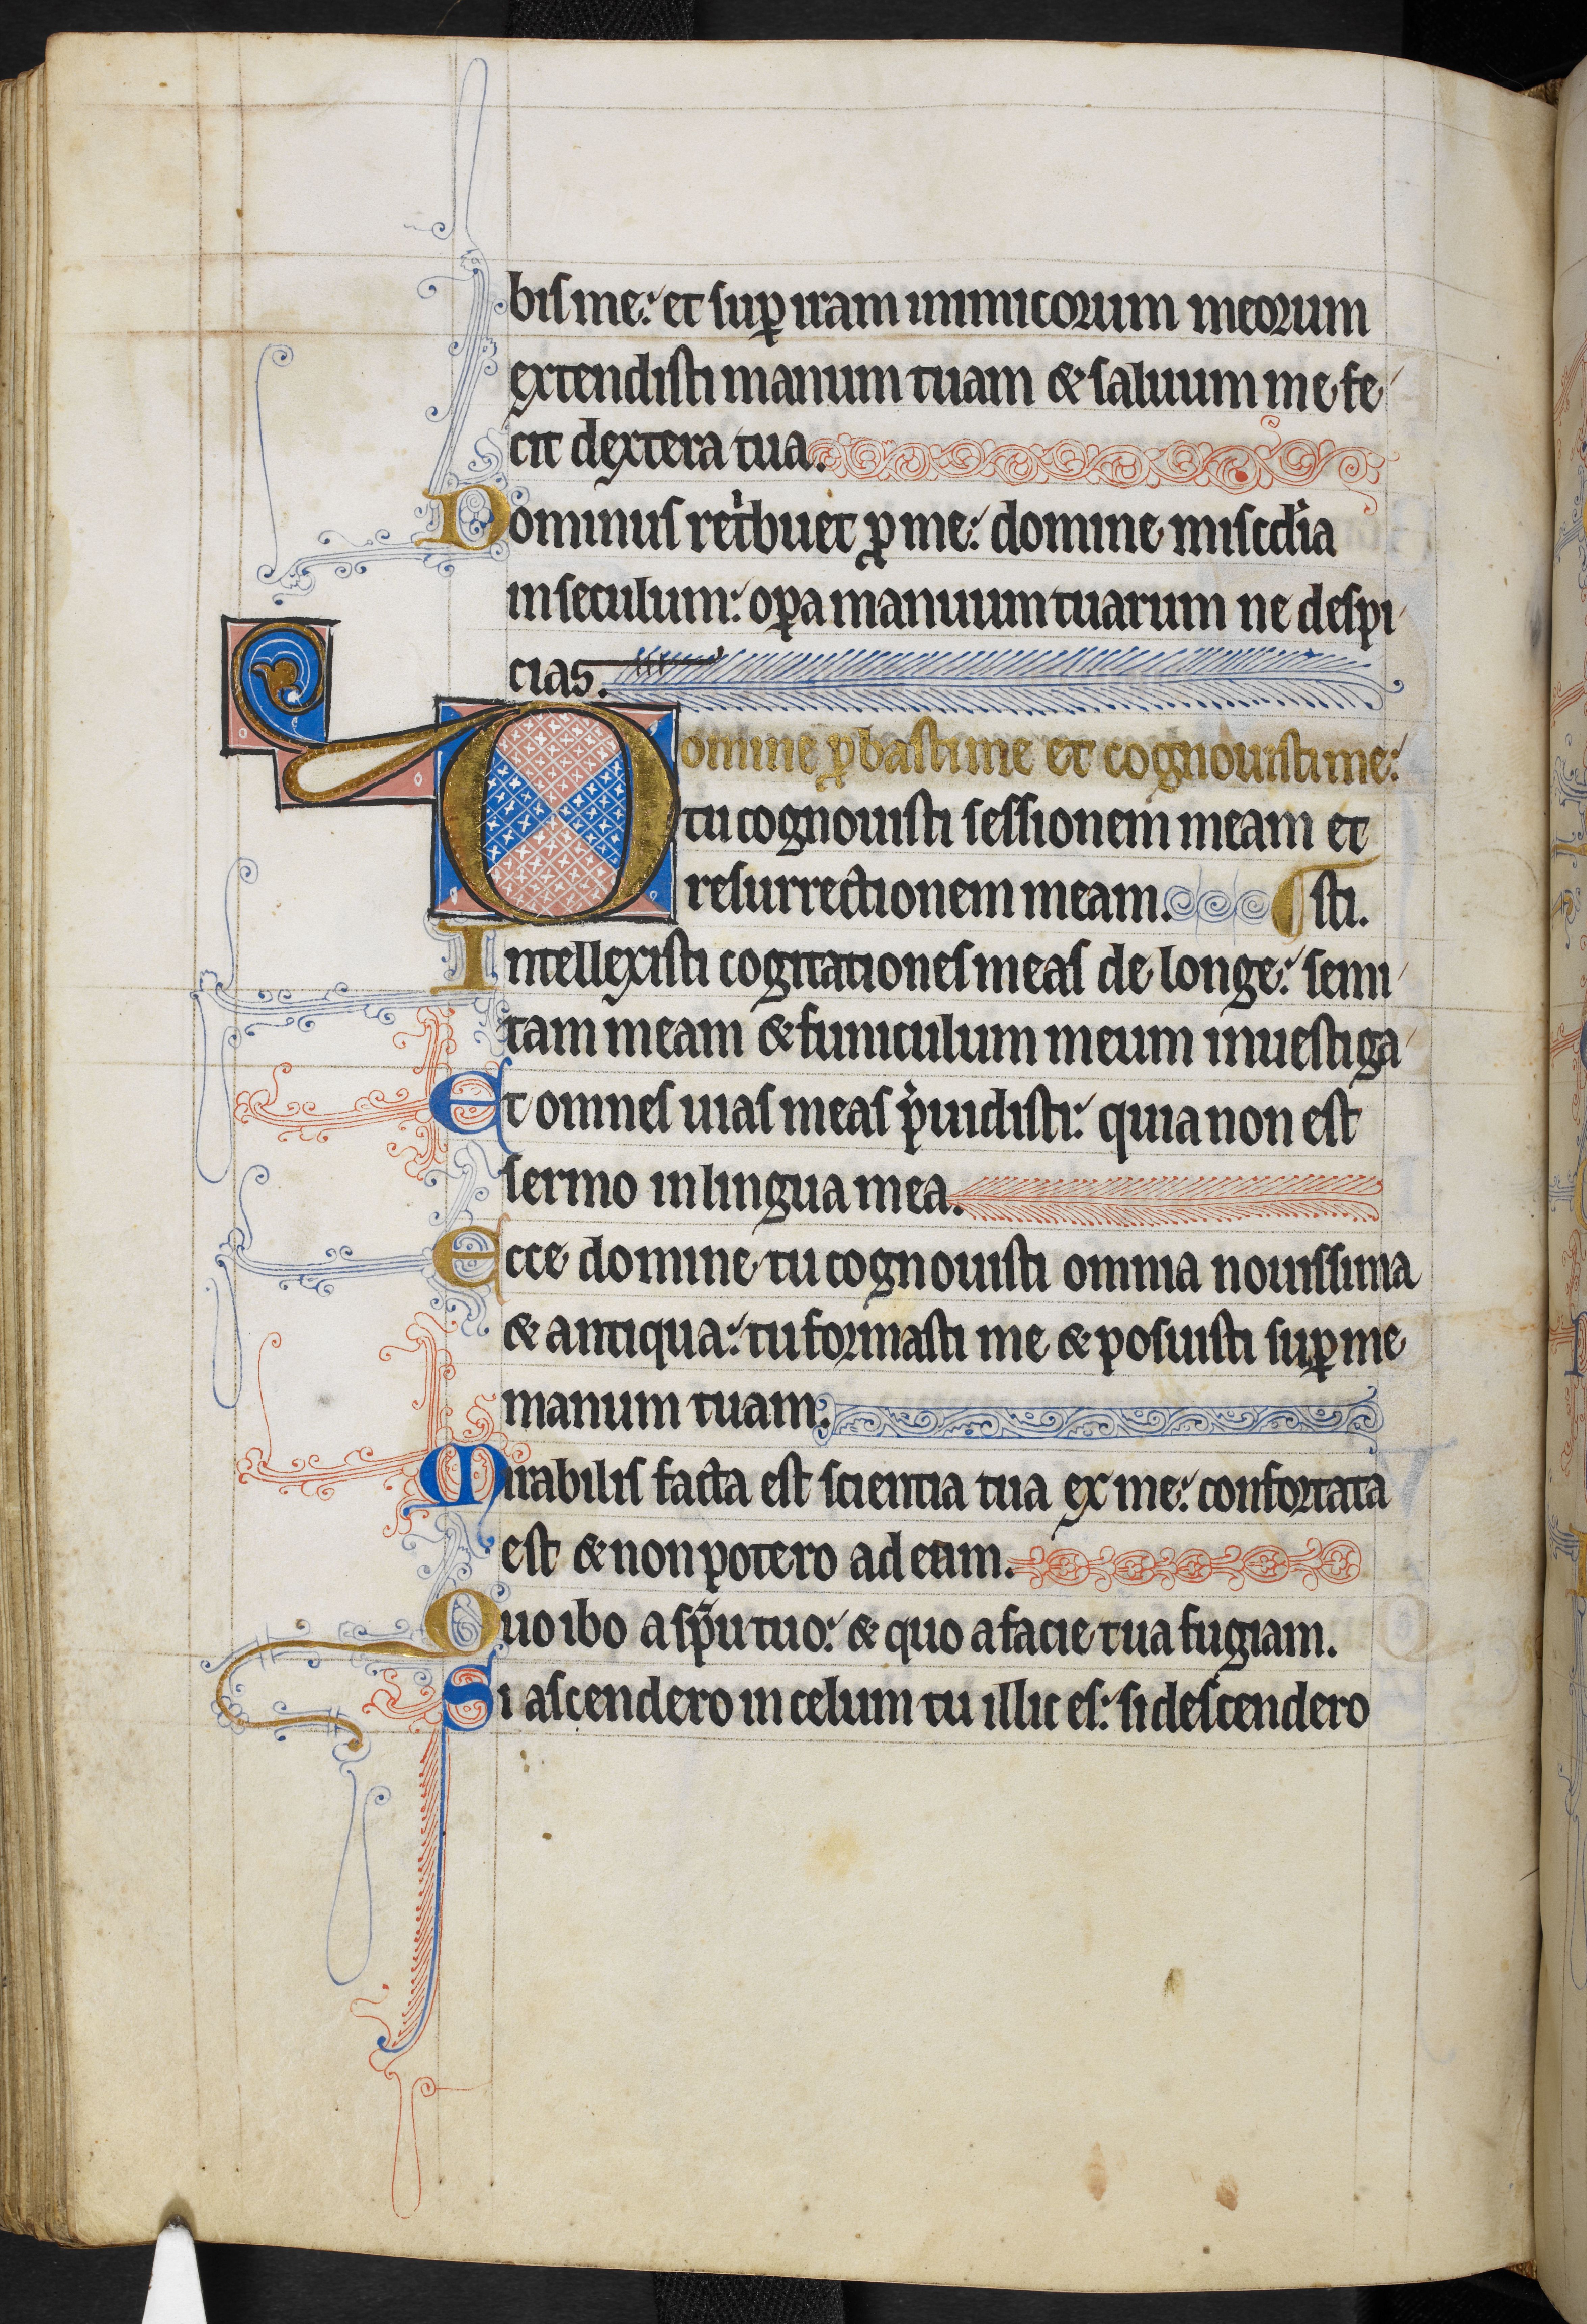 bis me: et sup iram inimicorum meorum
extendisti manum tuam & saluum me fe
cit dextera tua.
Dominus retbuet p me: domine miscdia
in seculum: opa manuum tuarum ne despi
cias.
Domine pbasti me et cognouisti me:
tu cognouisti sessionem meam et
resurrectionem meam. sti.
Intellexisti cogitationes meas de longe: semi
tam meam & funiculum meum inuestiga
Et omnes uias meas puidisti: quia non est
sermo in lingua mea.
Ecce domine tu cognouisti omnia nouissima
& antiqua: tu formasti me & posuisti sup me
manum tuam.
Mirabilis facta est scientia tua ex me: confortata
est & non potero ad eam.
Quo ibo a spu tuo: & quo a facie tua fugiam.
Si ascendero in celum tu illic es: si descendero